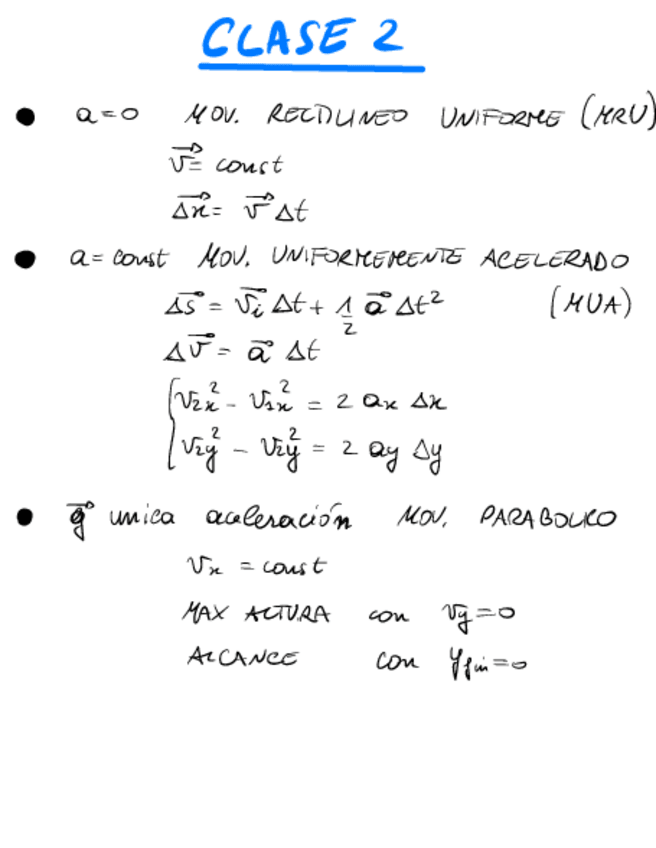 CLASE 2
• a=0 MOV. RECTILINEO UNIFORME (MRU)
v⃗ = const
Δx⃗ = v⃗ Δt
• a = const MOV. UNIFORMEMENTE ACELERADO
Δs⃗ = v⃗ᵢ Δt + 1/2 a⃗ Δt² (MUA)
Δv⃗ = a⃗ Δt
{ v₂ₓ² - v₁ₓ² = 2 ax Δx
v₂y² - v₂y² = 2 ay Δy
• g⃗ unica aceleración MOV. PARABOLICO
vx = const
MAX ALTURA con vy=0
ALCANCE con yfin=0